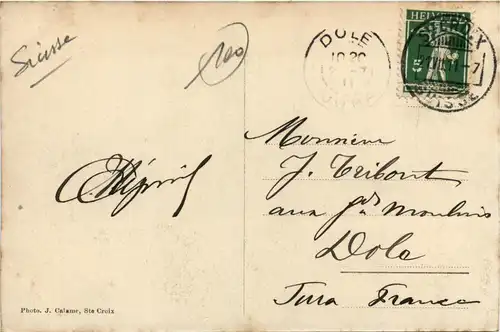 Suisse
100
DOLE
10 20
JURA
HELVETIA
5
SUISSE
Monsieur
J. Tribout
aux Gds Moulins
Dole
Jura France
Photo. J. Calame, Ste Croix